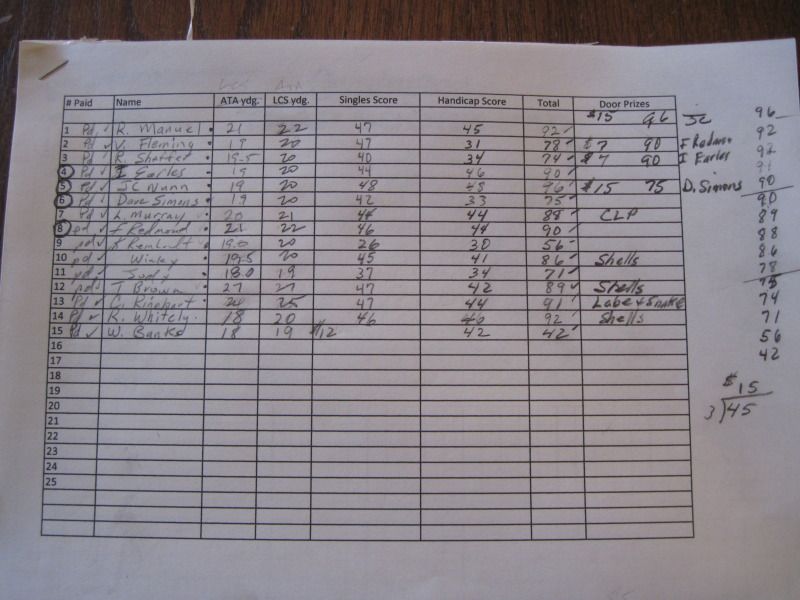 # Paid Name ATA ydg. LCS ydg. Singles Score Handicap Score Total Door Prizes
$15 96 JC 96
1 Pd. ✓ R. Manuel 21 22 47 45 92 ✓ 92
2 Pd ✓ V. Fleming 19 20 47 31 78 ✓ $7 90 F Redmon 92
3 Pd ✓ R. Shaffer 19.5 20 40 34 74 ✓ $7 90 I Earles 91
4 Pd ✓ I Earles 19 20 44 46 90 ✓
5 Pd ✓ JC Nunn 19 20 48 48 96 ✓ $15 75 D. Simons 90
6 Pd ✓ Dave Simons 19 20 42 33 75 ✓ 90
7 Pd ✓ L. Murray 20 21 44 44 88 ✓ CLP 89
8 pd ✓ F Redmond 21 22 46 44 90 ✓ 88
9 pd ✓ 19.0 20 26 30 56 ✓ 86
10 pd ✓ Winky 19.5 20 45 41 86 ✓ Shells 78
11 pd ✓ Judy 18.0 19 37 34 71 ✓ 75
12 pd ✓ T Brown 27 27 47 42 89 ✓ Shells 74
13 Pd ✓ C. Rinehart 25 47 44 91 ✓ Lube + Snake 71
14 Pd ✓ R. Whitely 18 20 46 46 92 ✓ Shells 56
15 Pd ✓ W. Banks 18 19 $12 42 42 ✓ 42
16
17
18 $15
19 3)45
20
21
22
23
24
25